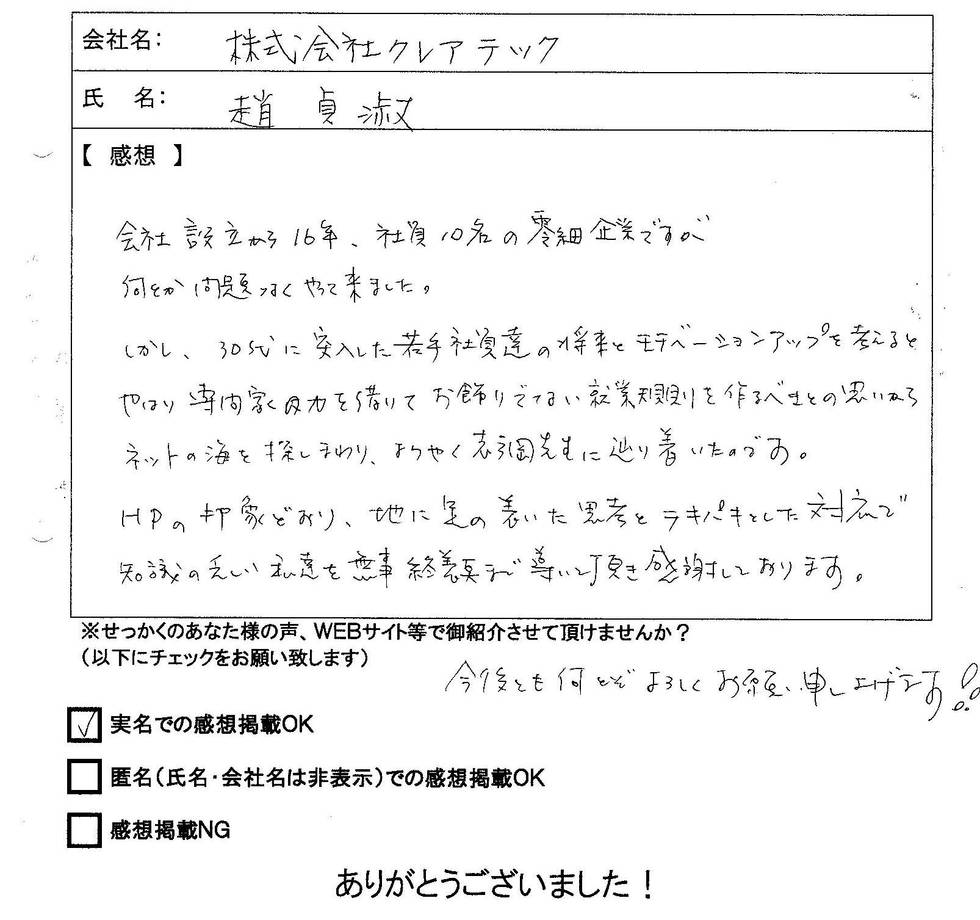 会社名: 株式会社クレアテック
氏 名: 趙 貞淑
【 感想 】
会社設立から16年、社員10名の零細企業ですが
何とか問題なくやって来ました。
しかし、30代に突入した若手社員達の将来とモチベーションアップを考えると
やはり専門家の力を借りてお飾りでない就業規則を作るべきとの思いから
ネットの海を探しまわり、ようやく志戸岡先生に辿り着いたのです。
HPの印象どおり、地に足の着いた思考とテキパキとした対応で
知識の乏しい私達を無事終着点まで導いて頂き感謝しております。
※せっかくのあなた様の声、WEBサイト等で御紹介させて頂けませんか?
(以下にチェックをお願い致します)
今後とも何とぞよろしくお願い申し上げます!!
実名での感想掲載OK
匿名(氏名・会社名は非表示)での感想掲載OK
感想掲載NG
ありがとうございました!